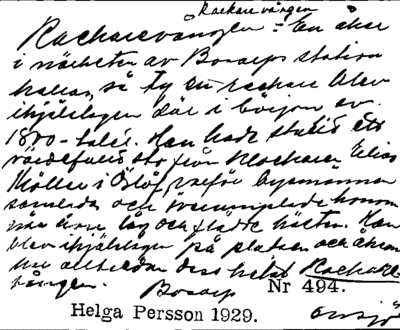 Rackarevången
Rackarevången = En åker
i närheten av Bosarps station
kallas så ty en rackare blev
ihjälslagen där i början av
1800-talet. Han hade stulit ett
värdefullt sto från klockaren Elias
Möller i Öslöf, varför bymännen
samlades och överrumplade honom
när ännu låg och flådde hästen. Han
blev ihjälslagen på platsen och åkern
har alltsedan dess hetat Rackare-
vången. Bosarp
Nr 494.
Helga Persson 1929. Onsjö